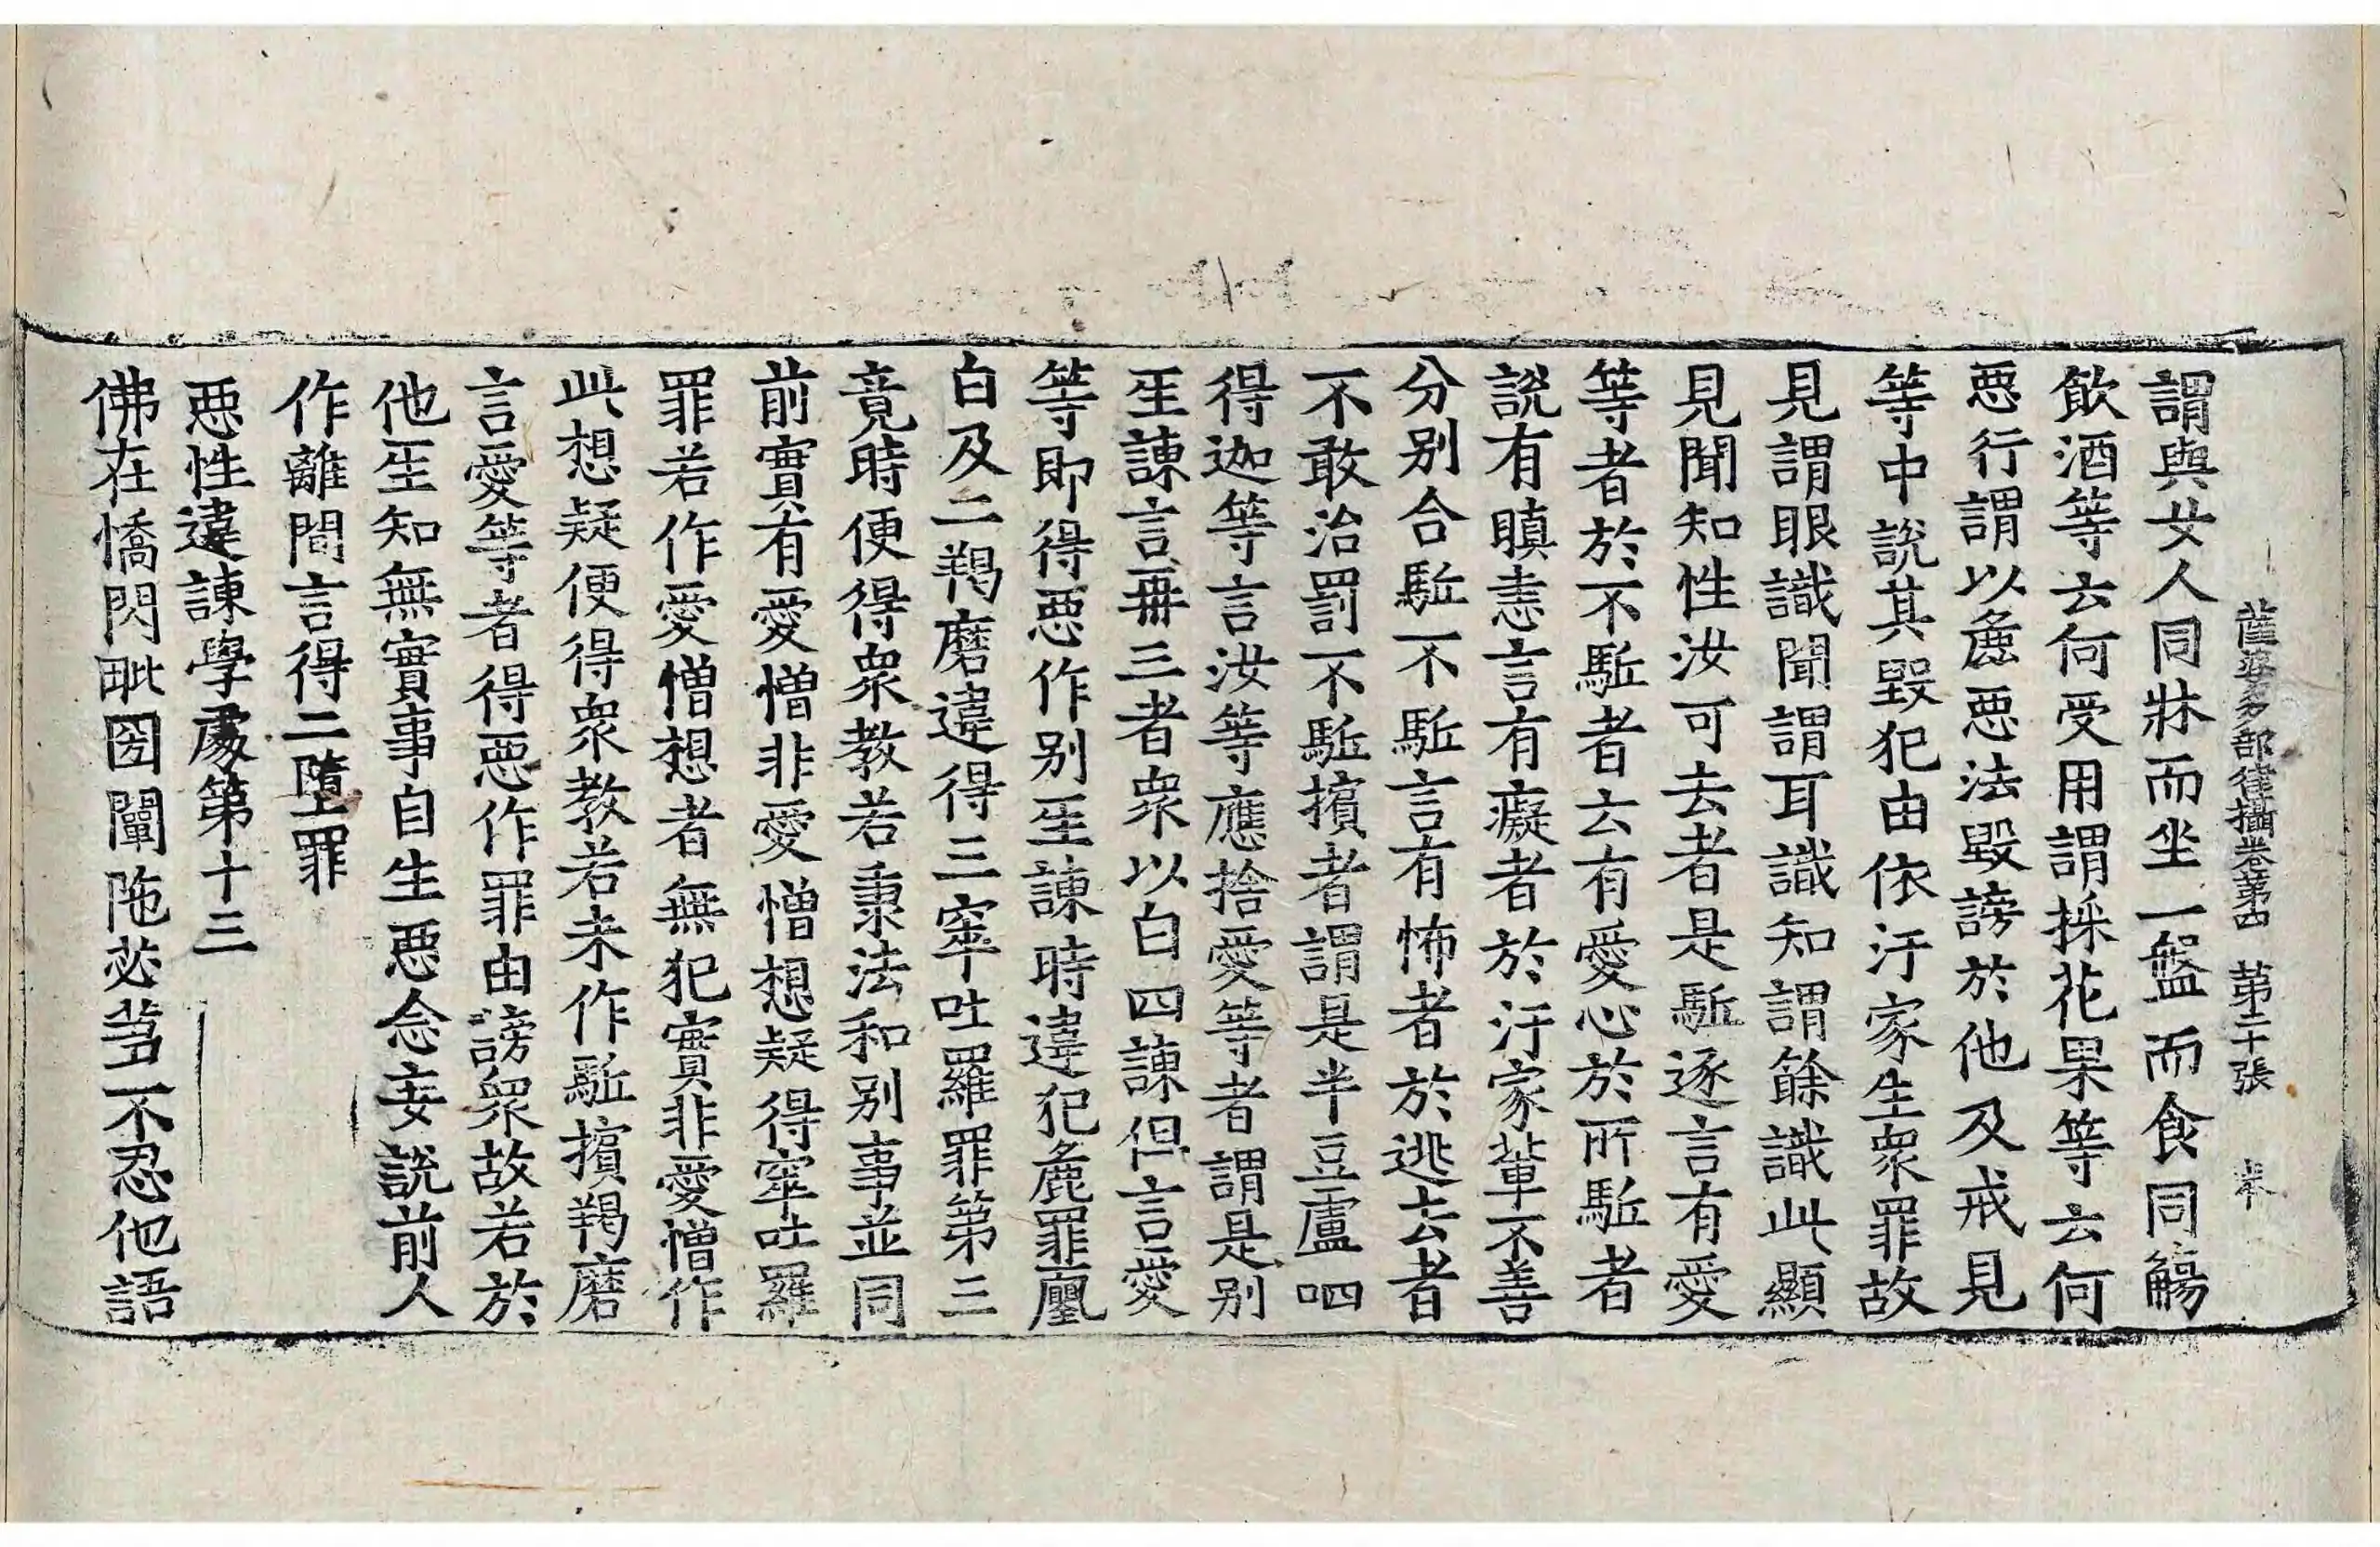 薩婆多部律攝卷第四 第二十張
謂與女人同牀而坐一盤而食同觴
飲酒等去何受用謂採花果等云何
惡行謂以麁惡法毀謗於他及戒見
等中說其毀犯由依汙家生衆罪故
見謂眼識聞謂耳識知謂餘識此顯
見聞知性汝可去者是駈逐言有愛
等者於不駈者云有愛心於所駈者
說有瞋恚言有癡者於汙家輩不善
分别合駈不駈言有怖者於逃去者
不敢治罰不駈擯者謂是半豆盧呬
得迦等言汝等應捨愛等者謂是别
𤯔諫言再三者衆以白四諫但言愛
等即得惡作别𤯔諫時違犯麁罪𨞬
白及二羯磨違得三窣吐羅罪第三
竟時便得衆教若秉法和别事並同
前實有愛憎非愛憎想疑得窣吐羅
罪若作愛憎想者無犯實非愛憎作
此想疑便得衆教若未作駈擯羯磨
言愛等者得惡作罪由謗衆故若於
他𤯔知無實事自生惡念妄說前人
作離間言得二墮罪
惡性違諫學處第十三
佛在憍閃毗國闡陁苾芻不忍他語